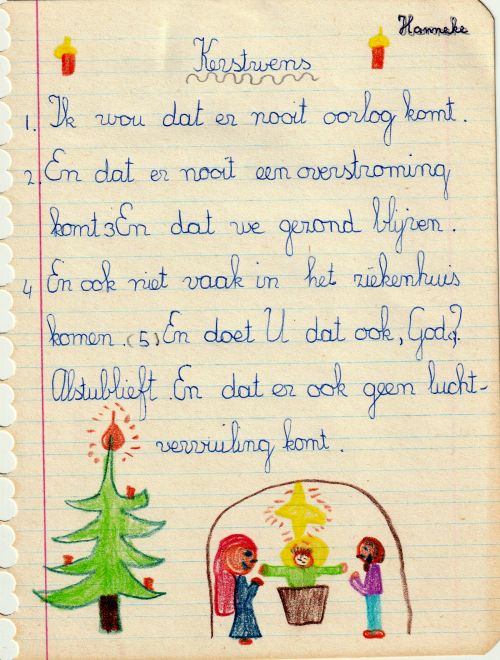 Hanneke
Kerstwens
1. Ik wou dat er nooit oorlog komt.
2. En dat er nooit een overstroming
komt 3 En dat we gezond blijven.
4 En ook niet vaak in het ziekenhuis
komen. (5) En doet U dat ook, God?
Alstublieft. En dat er ook geen lucht-
vervuiling komt.